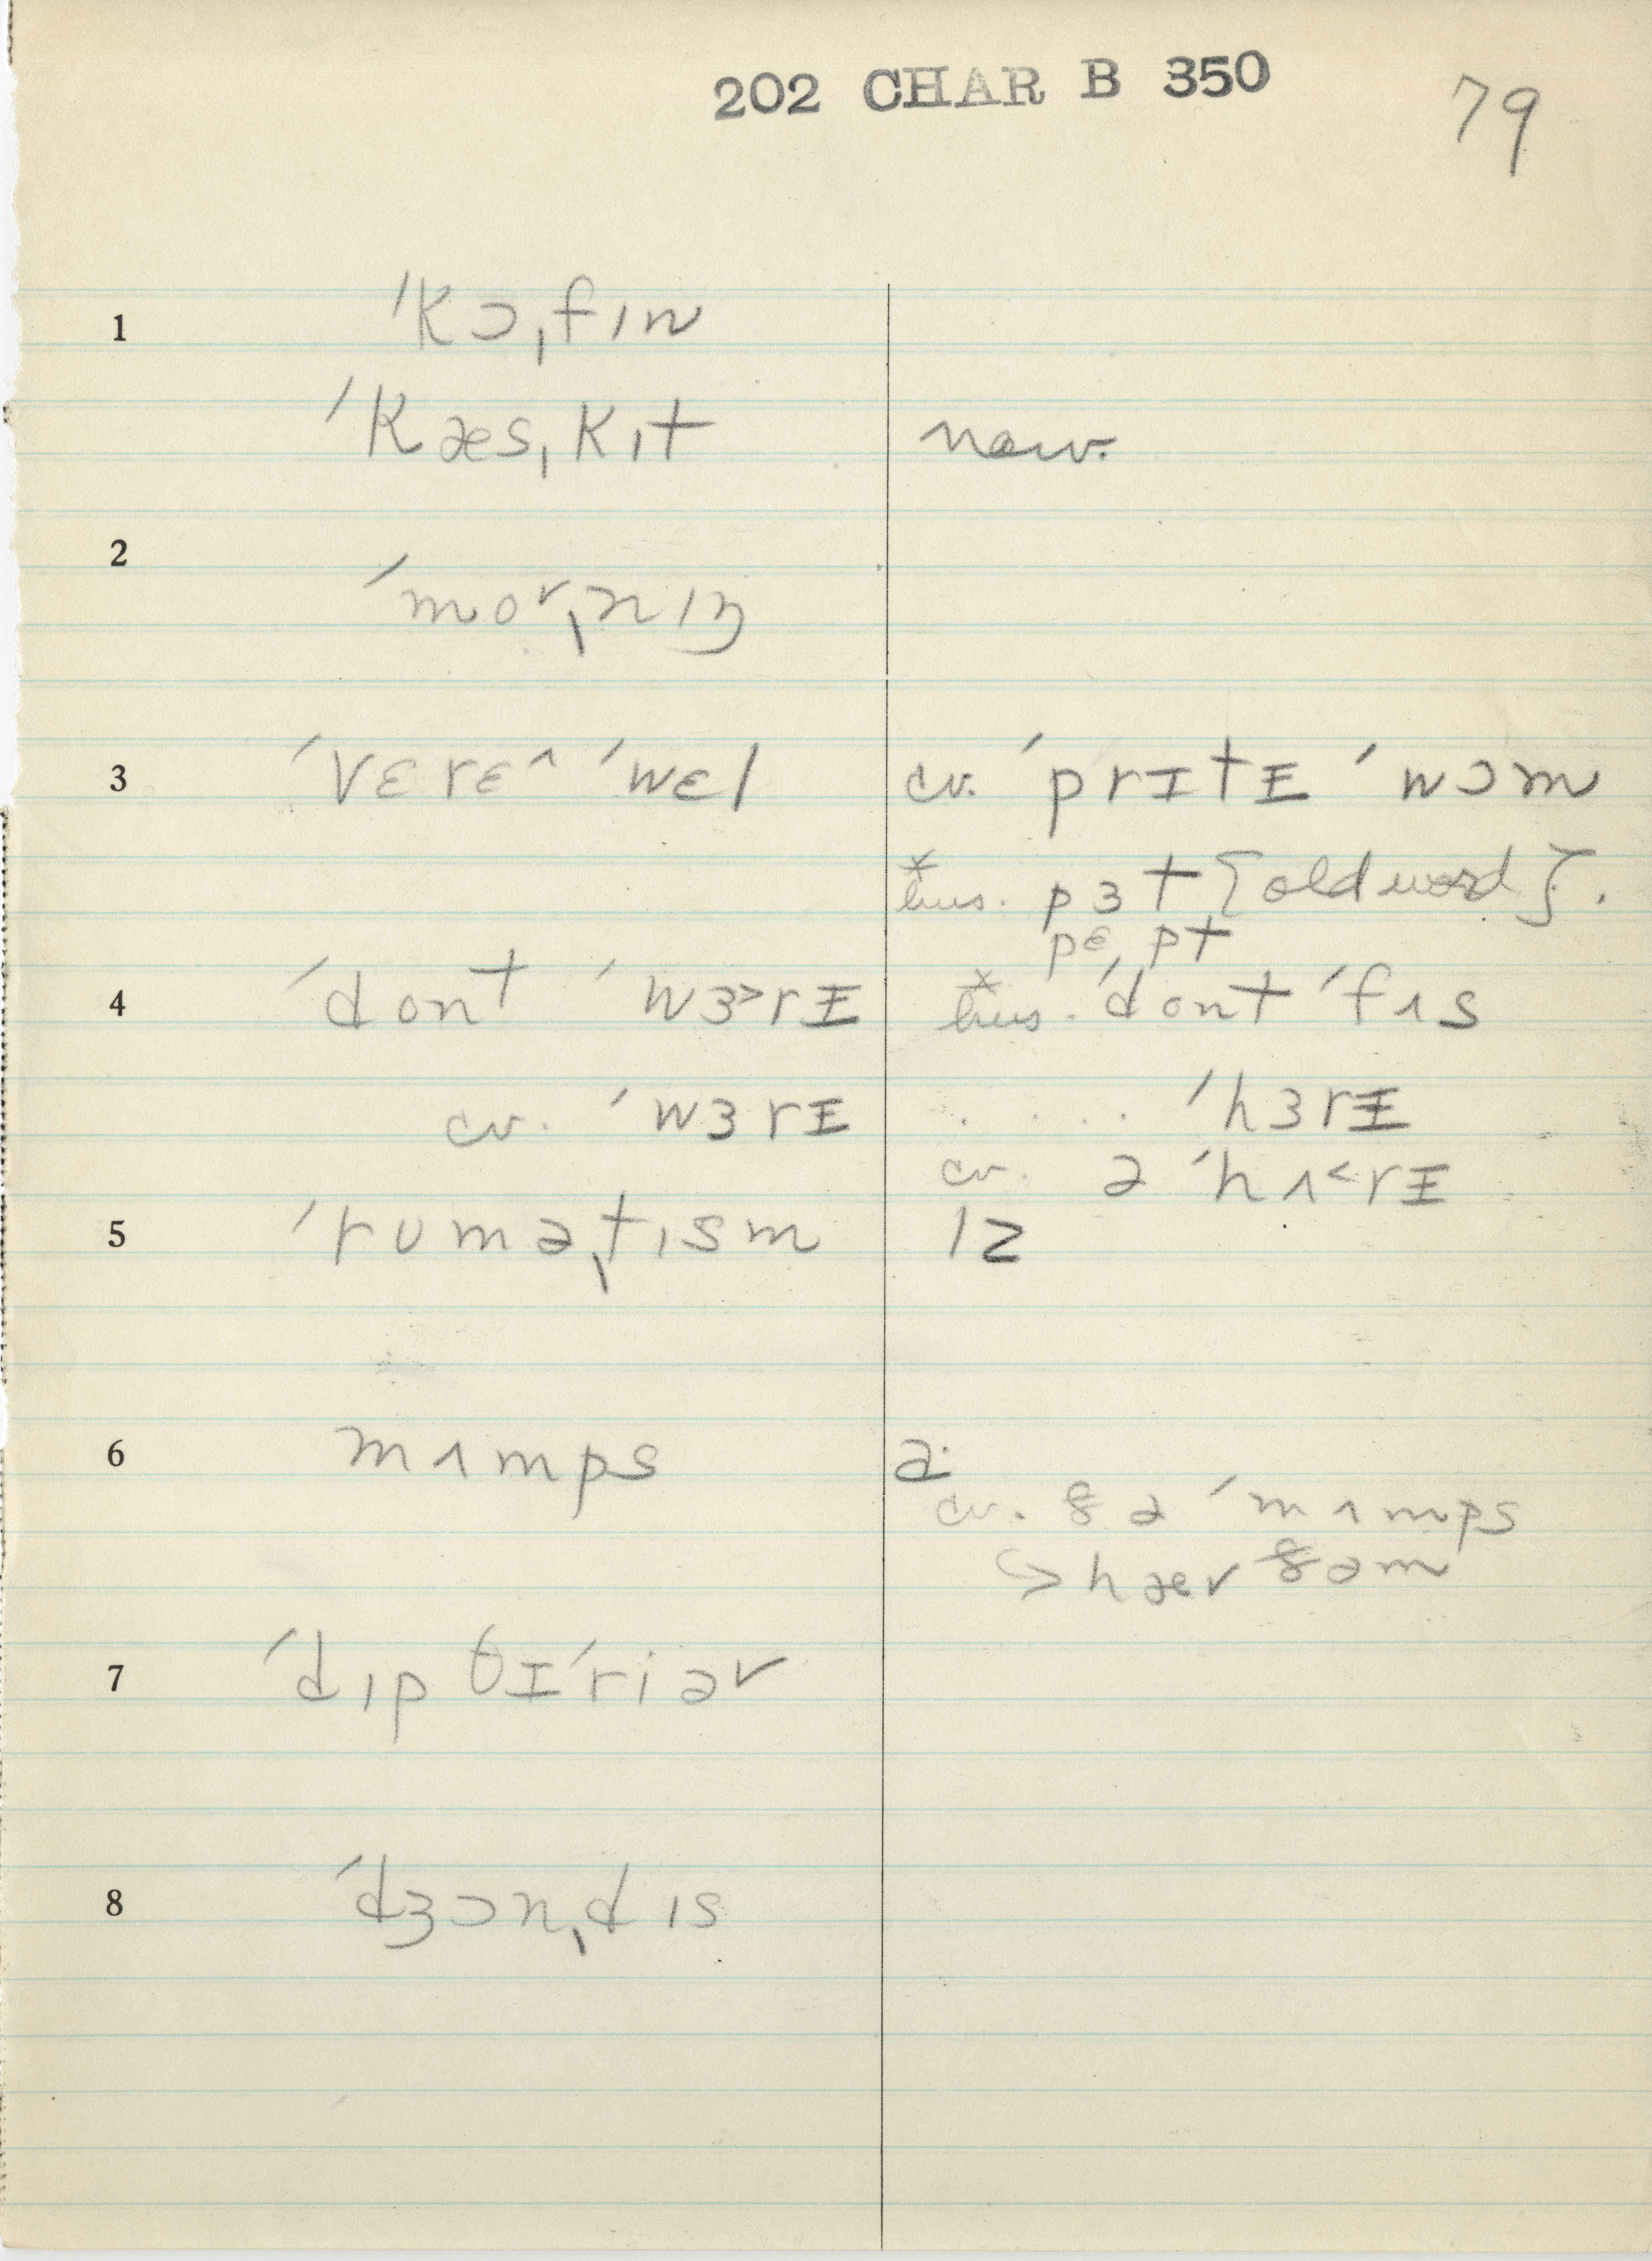 202 CHAR B 350
79
1 ˈkɔˌfɪn
ˈkæsˌkɪt now.
2 ˈmoɚˌnɪŋ
3 ˈvɛrɛ^ ˈwɛl cv. ˈprɪtɪ̵ ˈwɔm
pɜt {old word}.
pɛ pt
4 ˈdont ˈwɜ>rɪ̵ ˈdont ˈfʌs
cv. ˈwɜrɪ̵ . . . . ˈhɜrɪ̵
cv. ə ˈhʌ<rɪ̵
5 ˈruməˌtɪsm ɪz
6 mʌmps ə
cv. ðə ˈmʌmps
↳ hæv ðəm
7 ˈdɪpθɪˈriəɚ
8 ˈdʒɔnˌdɪs